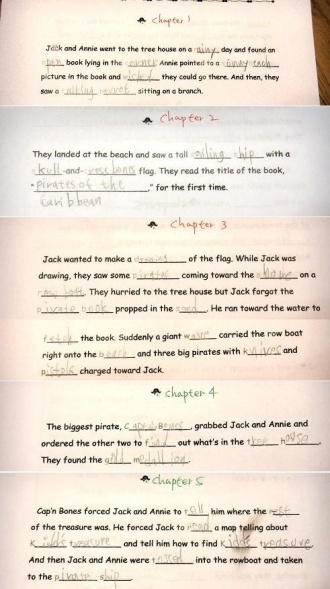 Chapter 1
Jack and Annie went to the tree house on a rainy day and found an
open book lying in the corner Annie pointed to a sunny beach
picture in the book and wished they could go there. And then, they
saw a talking parrot sitting on a branch.
Chapter 2
They landed at the beach and saw a tall sailing ship with a
skull-and-crossbones flag. They read the title of the book,
"Pirates of the" for the first time.
Caribbean
Chapter 3
Jack wanted to make a drawing of the flag. While Jack was
drawing, they saw some pirates coming toward the on a
row boat. They hurried to the tree house but Jack forgot the
pirate book propped in the sand. He ran toward the water to
the book. Suddenly a giant wave carried the row boat
right onto the beach and three big pirates with knives and
pistols charged toward Jack.
chapter 4
The biggest pirate, Cap'n Bones, grabbed Jack and Annie and
ordered the other two to find out what's in the tree house.
They found the gold medallion.
chapter 5
Cap'n Bones forced Jack and Annie to tell him where the rest
of the treasure was. He forced Jack to read a map telling about
Kidd's treasure and tell him how to find Kidd's treasure.
And then Jack and Annie were into the rowboat and taken
to the pirate ship.